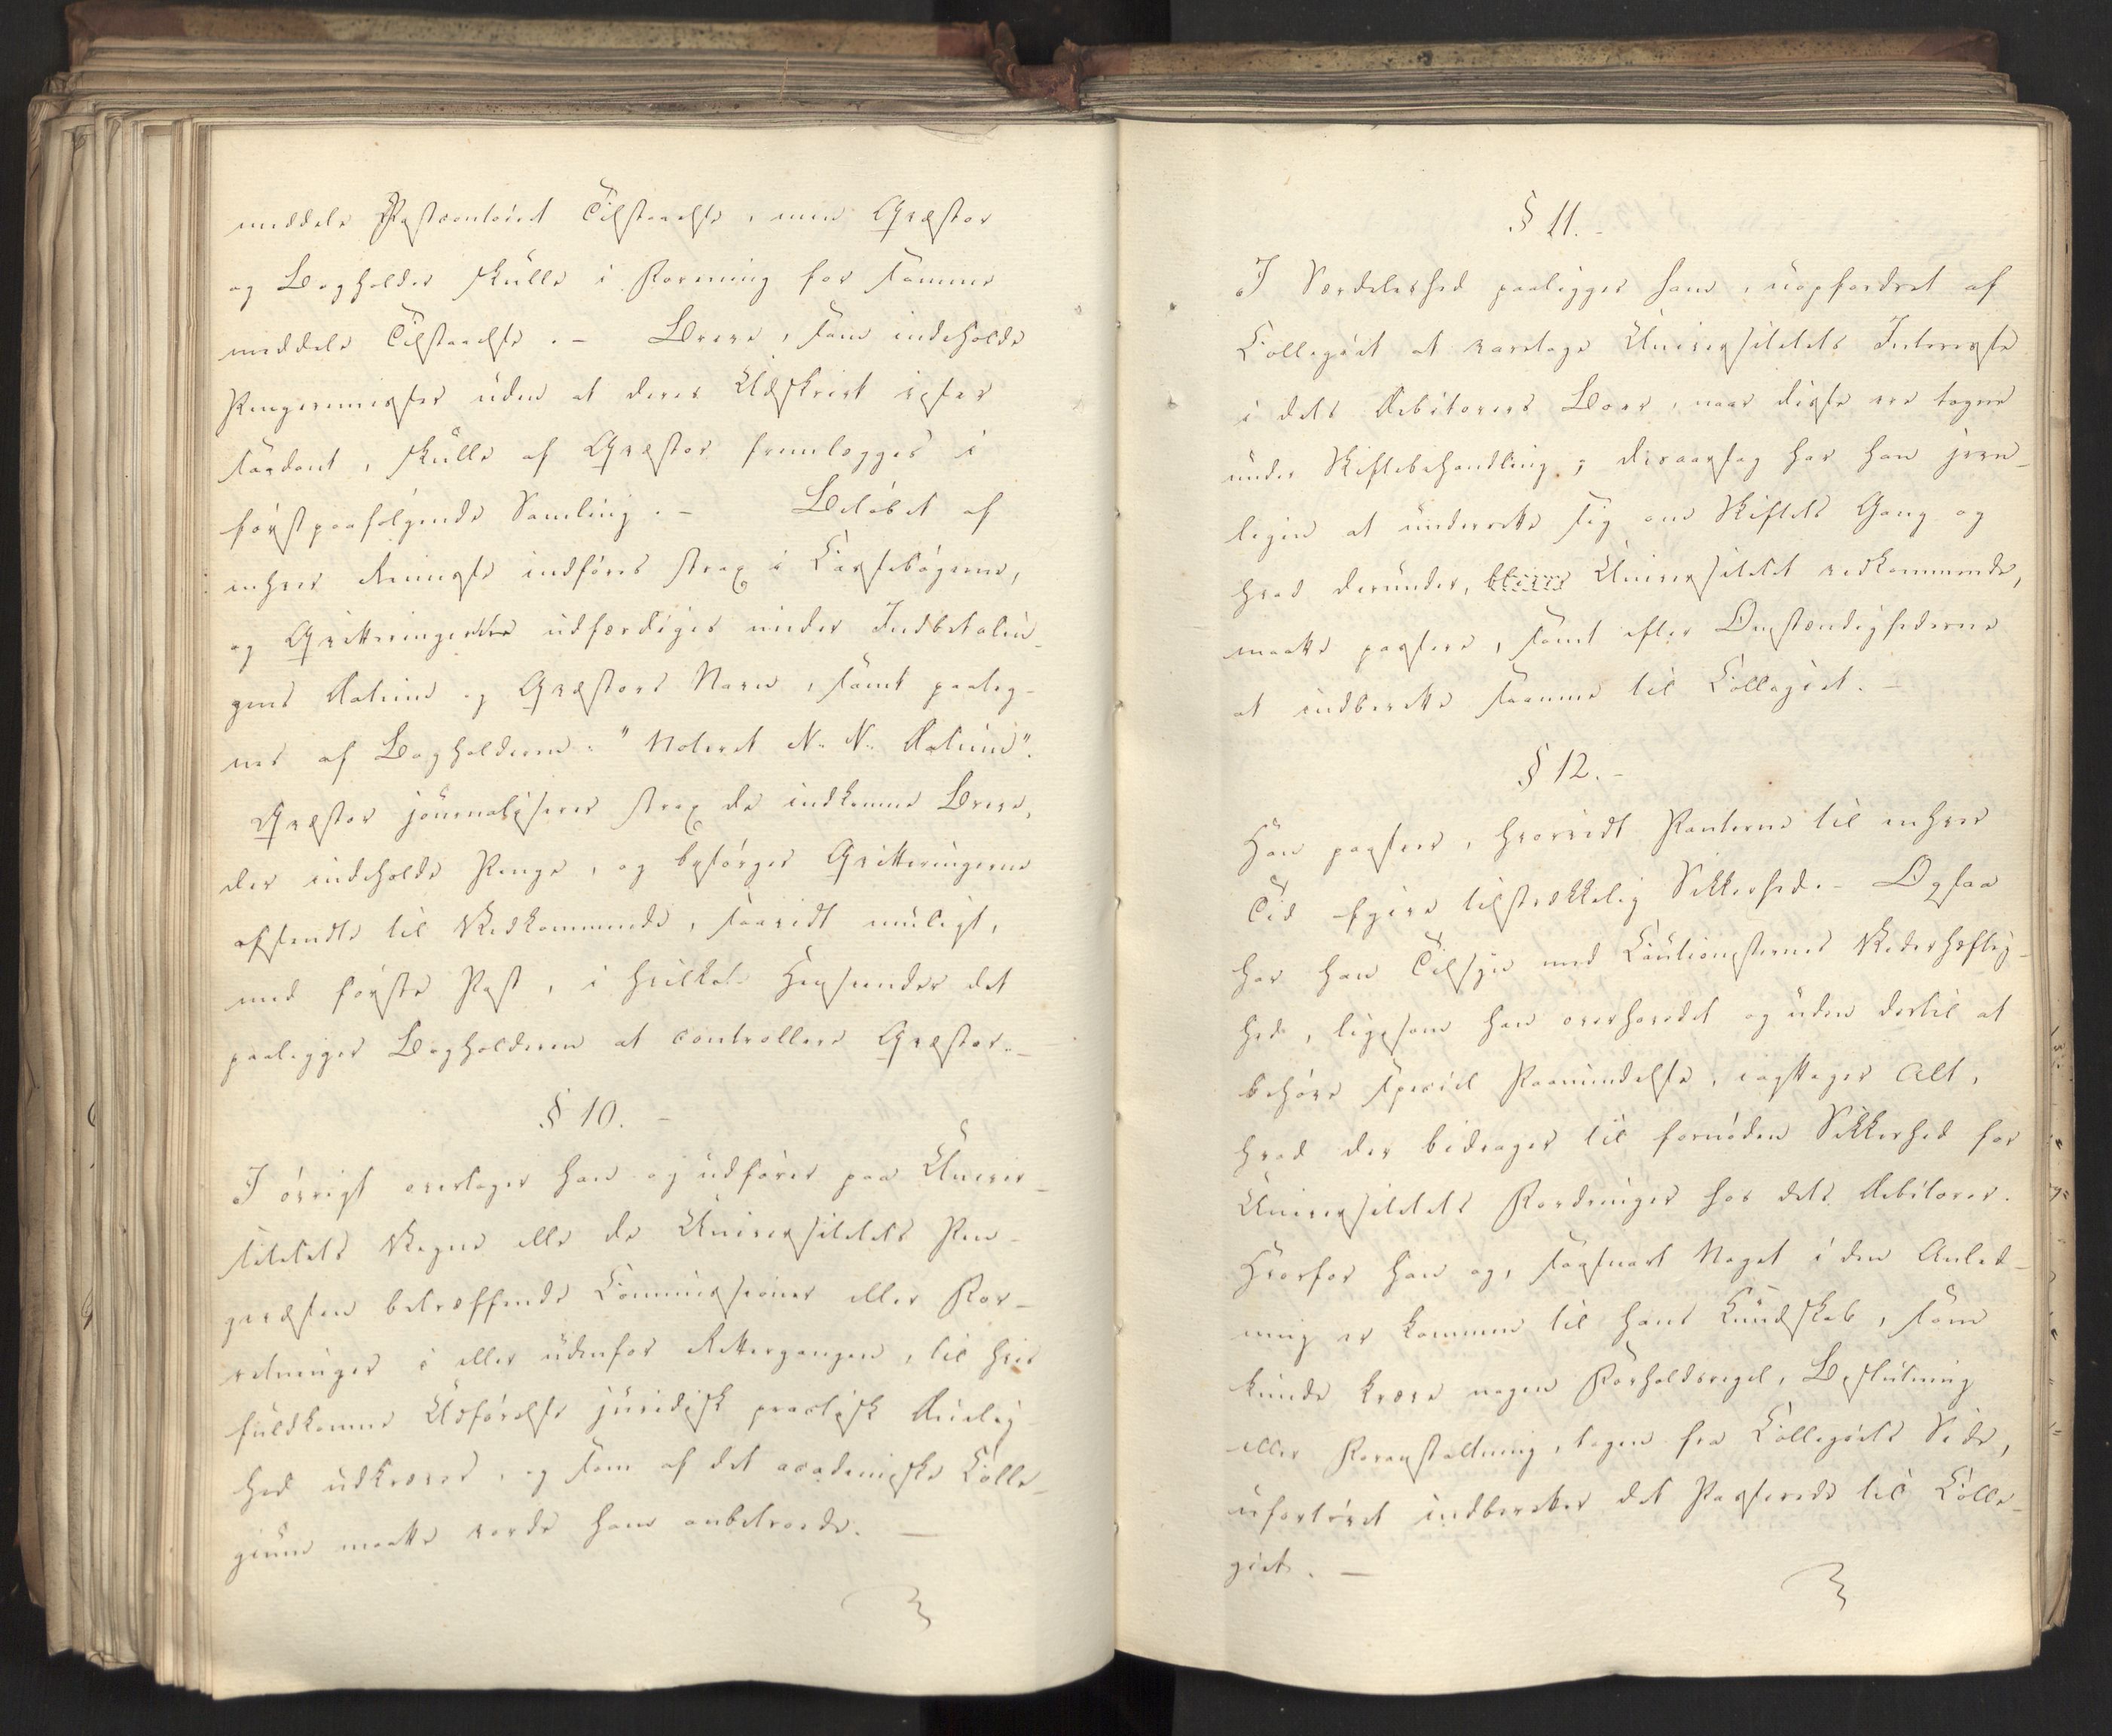 meddele Postcontoiret Tilstaaelse, men Qvæstor
og Bogholder skulle i Forening for samme
meddele Tilstaaelse. – Breve, som indeholde
Pengeremisser uden at deres Udskrivt viser
saadant, skulle af Qvæstor fremlægges i
förstpaafölgende Samling. – Belöbet af
enhver Rimesse indföres strax i Cassebögerne,
og Qvitteringerne udfærdiges under Indbetalin-
gens Datum og Qvæstors Navn, samt paateg-
nes af Bogholderen: "Noteret N. N. Datum".
Qvæstor journaliserer strax de indkomne Breve,
der indeholde Penge, og besörger Qvitteringerne
afsendte til Vedkommende, saavidt muligt,
med förste Post, i hvilket Henseende det
paaligger Bogholderen at controllere Qvæstor. –
§ 10. –
I övrigt overtager han og udförer paa Univer-
sitetets Vegne alle de Universitetets Pen-
gevæsen betræffende Commissioner eller For-
retninger i eller udenfor Rettergangen, til hvis
fuldkomne Udförelse juridisk practisk Duelig-
hed udkræves, og som af det academiske Colle-
gium maatte vorde ham anbetroede. –
§ 11. –
I Særdeleshed paaligger ham, uopfordret af
Collegiet at varetage Universitetets Interesse
i dets Debitorers Boer, naar disse ere tagne
under Skiftebehandling; desaarsag har han jevn-
ligen at underrette sig om Skiftets Gang og
hvad derunder, blive Universitetet vedkommende,
maatte passere, samt efter Omstændighederne
at indberette samme til Collegiet. –
§ 12. –
Han paaseer, hvorvidt Panterne til enhver
Tid afgive tilstrækkelig Sikkerhed. – Ogsaa
har han Tilsyn med Cautionisternes Vederheftig-
hed, ligesom han overhovedet og uden dertil at
behöve speciel Paamindelse, iagttager Alt,
hvad der bidrager til fornöden Sikkerhed for
Universitetets Fordringer hos dets Debitorer.
Hvorfor han og, saasnart Noget i den Anled-
ning er kommen til hans Kundskab, som
kunde kræve nogen Forholdsregel, Beslutning
eller Foranstaltning, tagen fra Collegiets Side,
ufortövet indberetter det Passerede til Colle-
giet. –